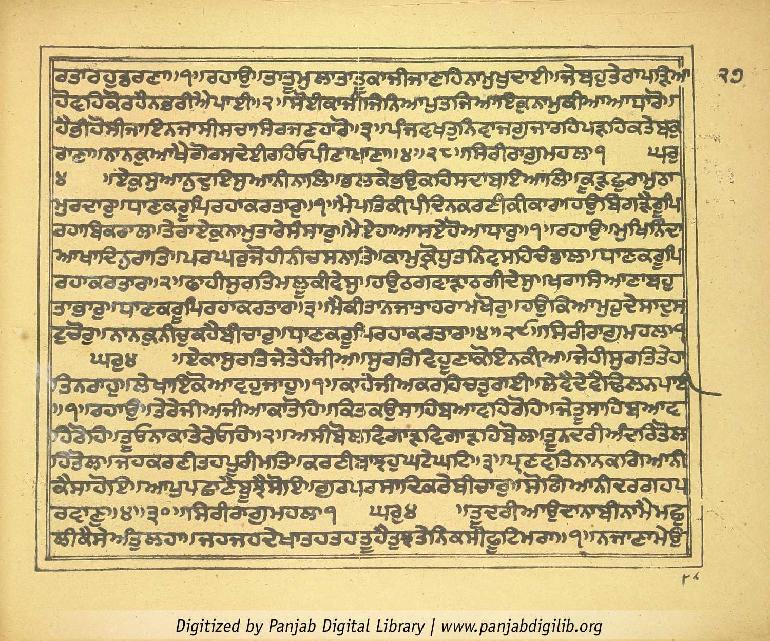 ਰਤਾਰਹੁਡਰਣਾ॥੧॥ਰਹਾਉ॥ਤਾਤੂਮੁਲਾਤਾਤੂਕਾਜੀਜਾਣਹਿਨਾਮੁਖੁਦਾਈ॥ਜੇਬਹੁਤੇਰਾਪੜਿਆ ੨੭
ਹੋਵਹਿਕੋਰਹੈਨਭਰੀਐਪਾਈ॥੨॥ਸੋਈਕਾਜੀਜਿਨਿਆਪੁਤਜਿਆਇਕੁਨਾਮੁਕੀਆਆਧਾਰੋ॥
ਹੈਭੀਹੋਸੀਜਾਇਨਜਾਸੀਸਚਾਸਿਰਜਣਹਾਰੋ॥੩॥ਪੰਜਵਖਤਨਿਵਾਜਗੁਜਾਰਹਿਪੜਹਿਕਤੇਬਕੁ
ਰਾਣਾ॥ਨਾਨਕੁਆਖੈਗੋਰਸਦੇਈਰਹਿਓਪੀਣਾਖਾਣਾ॥੪॥੨੮॥ਸਿਰੀਰਾਗੁਮਹਲਾ੧ ਘਰੁ
੪ ॥ਏਕੁਸੁਆਨੁਦੁਇਸੁਆਨੀਨਾਲਿ॥ਭਲਕੇਭਉਕਹਿਸਦਾਬਇਆਲਿ॥ਕੂੜੁਛੁਰਾਮੁਠਾ
ਮੁਰਦਾਰੁ॥ਧਾਣਕਰੂਪਿਰਹਾਕਰਤਾਰ॥੧॥ਮੈਪਤਿਕੀਪੰਦਿਨਕਰਣੀਕੀਕਾਰ॥ਹਉਬਿਗੜੈਰੂਪਿ
ਰਹਾਬਿਕਰਾਲ॥ਤੇਰਾਏਕੁਨਾਮੁਤਾਰੇਸੰਸਾਰੁ॥ਮੈਏਹਾਆਸਏਹੋਆਧਾਰੁ॥੧॥ਰਹਾਉ॥ਮੁਖਿਨਿੰਦਾ
ਆਖਾਦਿਨੁਰਾਤਿ॥ਪਰਘਰੁਜੋਹੀਨੀਚਸਨਾਤਿ॥ਕਾਮੁਕ੍ਰੋਧੁਤਨਿਵਸਹਿਚੰਡਾਲ॥ਧਾਣਕਰੂਪਿ
ਰਹਾਕਰਤਾਰ॥੨॥ਫਾਹੀਸੁਰਤਿਮਲੂਕੀਵੇਸੁ॥ਹਉਠਗਵਾੜਾਠਗੀਦੇਸੁ॥ਖਰਾਸਿਆਣਾਬਹੁ
ਤਾਭਾਰੁ॥ਧਾਣਕਰੂਪਿਰਹਾਕਰਤਾਰ॥੩॥ਮੈਕੀਤਾਨਜਾਤਾਹਰਾਮਖੋਰੁ॥ਹਉਕਿਆਮੁਹੁਦੇਸਾਦੁਸ
ਟੁਚੋਰੁ॥ਨਾਨਕੁਨੀਚੁਕਹੈਬੀਚਾਰੁ॥ਧਾਣਕਰੂਪਿਰਹਾਕਰਤਾਰ॥੪॥੨੯॥ਸਿਰੀਰਾਗੁਮਹਲਾ੧
ਘਰੁ੪ ॥ਏਕਾਸੁਰਤਿਜੇਤੇਹੈਜੀਆ॥ਸੁਰਤਿਵਿਹੂਣਾਕੋਇਨਕੀਆ॥ਜੇਹੀਸੁਰਤਿਤੇਹਾ
ਤਿਨਰਾਹੁ॥ਲੇਖਾਇਕੋਆਵਹੁਜਾਹੁ॥੧॥ਕਾਹੇਜੀਅਕਰਹਿਚਤੁਰਾਈ॥ਲੇਵੈਦੇਵੈਢਿਲਨਪਾਈ
॥੧॥ਰਹਾਉ॥ਤੇਰੇਜੀਅਜੀਆਕਾਤੋਹਿ॥ਕਿਤਕਉਸਾਹਿਬਆਵਹਿਰੋਹਿ॥ਜੇਤੂਸਾਹਿਬਆਵ
ਹਿਰੋਹਿ॥ਤੂਓਨਾਕਾਤੇਰੇਓਹਿ॥੨॥ਅਸੀਬੋਲਵਿਗਾੜਵਿਗਾੜਹਿਬੋਲ॥ਤੂਨਦਰੀਅੰਦਰਿਤੋਲ
ਹਿਤੋਲ॥ਜਹਕਰਣੀਤਹਪੂਰੀਮਤਿ॥ਕਰਣੀਬਾਝਹੁਘਟੇਘਟਿ॥੩॥ਪ੍ਰਣਵਤਿਨਾਨਕਗਿਆਨੀ
ਕੈਸਾਹੋਇ॥ਆਪੁਪਛਾਣੈਬੂਝੈਸੋਇ॥ਗੁਰਪਰਸਾਦਿਕਰੇਬੀਚਾਰੁ॥ਸੋਗਿਆਨੀਦਰਗਹਪ
ਰਵਾਣੁ॥੪॥੩੦॥ਸਿਰੀਰਾਗੁਮਹਲਾ੧ ਘਰੁ੪ ॥ਤੂਦਰੀਆਉਦਾਨਾਬੀਨਾਮੈਮਛੁ
ਲੀਕੈਸੇਅੰਤੁਲਹਾ॥ਜਹਜਹਦੇਖਾਤਹਤਹਤੂਹੈਤੁਝਤੇਨਿਕਸੀਫੂਟਿਮਰਾ॥੧॥ਨਜਾਣਾਮੇਉ
Digitized by Panjab Digital Library | www.panjabdigilib.org